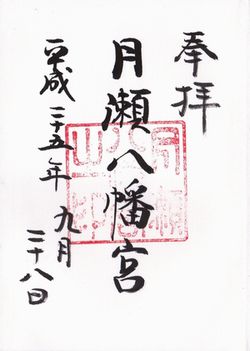 奉拝
月瀬八幡宮
平成二十五年
九月
二十八日